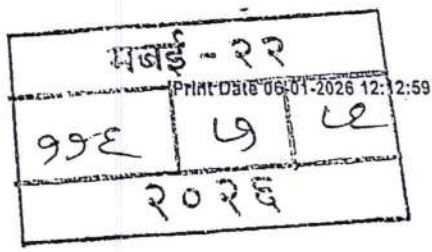 मबई - २२
Print Date 06-01-2026 12:12:59
११६ ७
२०२६